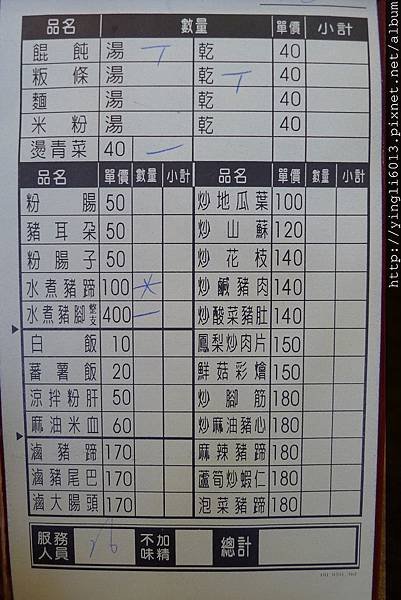 品名 數量 單價 小計
餛飩 湯 乾 40
粄條 湯 乾 40
麵 湯 乾 40
米粉 湯 乾 40
燙青菜 40
品名 單價 數量 小計 品名 單價 數量 小計
粉腸 50 炒地瓜葉 100
豬耳朵 50 炒山蘇 120
粉腸子 50 炒花枝 140
水煮豬蹄 100 炒鹹豬肉 140
水煮豬腳 整支 400 炒酸菜豬肚 140
白飯 10 鳳梨炒肉片 150
蕃薯飯 20 鮮菇彩燴 150
涼拌粉肝 50 炒腳筋 180
麻油米血 60 炒麻油豬心 180
滷豬蹄 170 麻辣豬蹄 180
滷豬尾巴 170 蘆筍炒蝦仁 180
滷大腸頭 170 泡菜豬蹄 180
服務人員 不加味精 總計
http://yingli6013.pixnet.net/album